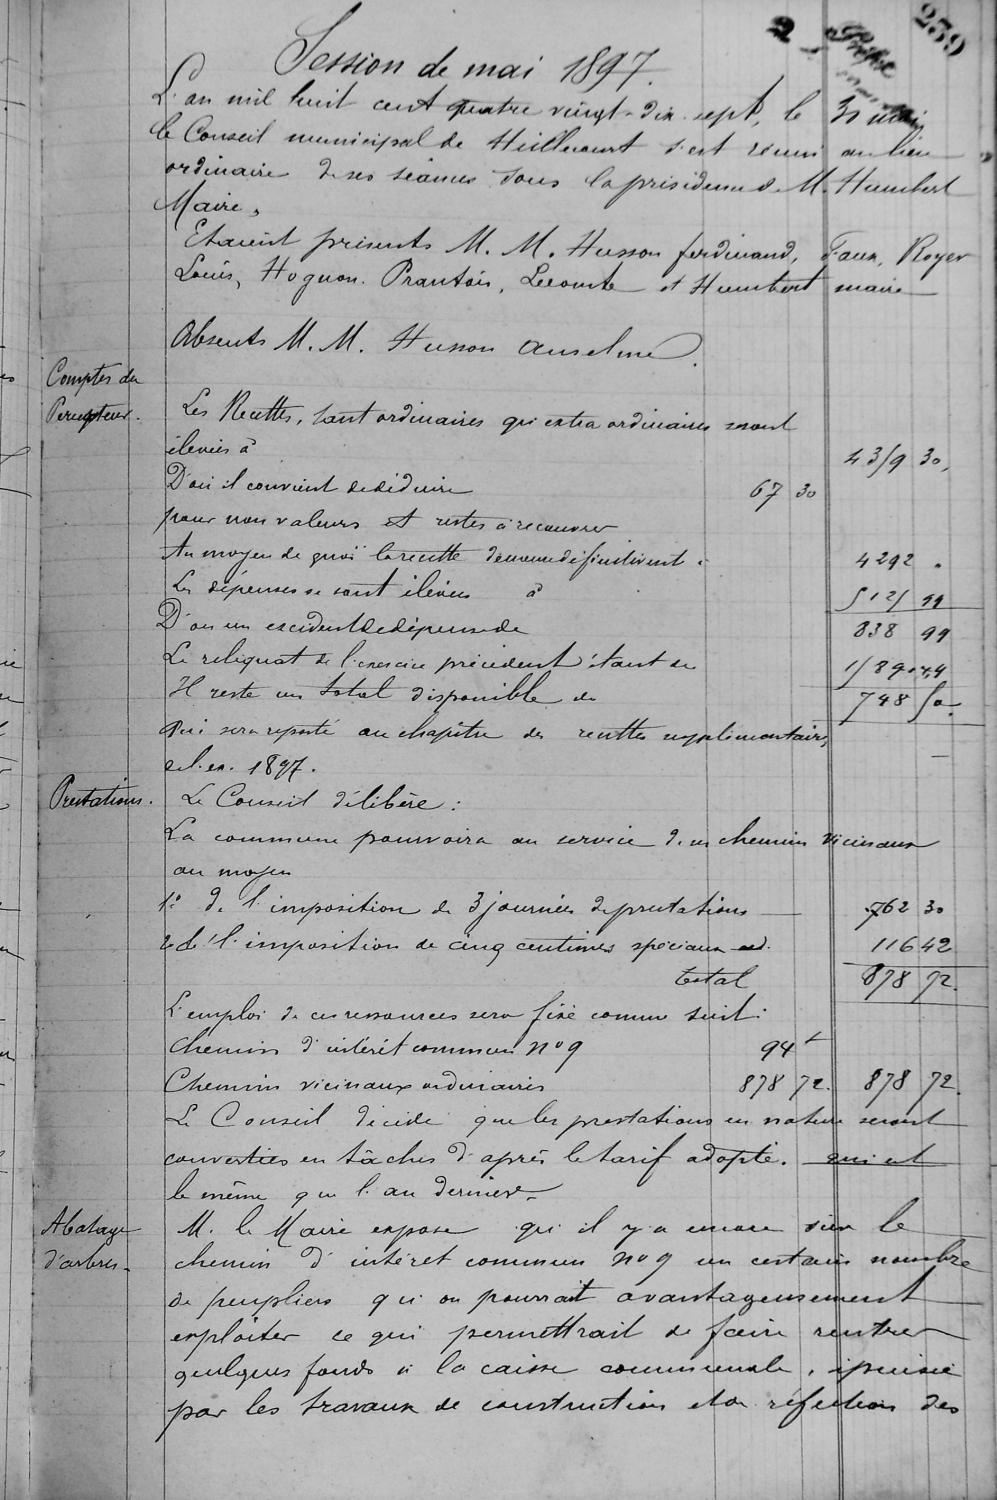 239
2
Session de mai 1897.
L'an mil huit cent quatre vingt-dix-sept, le 30 mai
le Conseil municipal de Heillecourt s'est réuni au lieu
ordinaire de ses séances sous la présidence de M. Humbert
Maire.
Etaient présents M. M. Husson ferdinand, Faux, Royer
Louis, Hognon. Prantois, Lecomte et Humbert maire
Absents M. M. Husson Anselme.
Comptes du
Percepteur.
Les Recettes, tant ordinaires qu'extra ordinaires se sont
élevées à 4359 30
D'où il convient de déduire 67 30
pour non valeurs et restes à recouvrer
Au moyen de quoi la recette demeure définitivement à 4292 "
Les dépenses se sont élevées à 5125 99
D'où un excédent de dépense de 838 99
Le reliquat de l'exercice précédent étant de 1589.44
Il reste un total disponible de 748 50.
Qui sera reporté au chapître des recettes supplémentaires
de l'ex. 1897.
Prestations.
Le Conseil délibère :
La commune pourvoira au service de ses chemins vicinaux
au moyen
1° de l'imposition de 3 journées de prestations 762 30
2° de l'imposition de cinq centimes spéciaux 116 42
total 878 72.
L'emploi de ces ressources sera fixé comme suit :
Chemins d'intérêt commun n° 9 94
Chemins vicinaux ordinaires 878 72. 878 72.
Le Conseil décide que les prestations en nature seront
converties en tâches d'après le tarif adopté. qui est
le même que l'an dernier.
Abatage
d'arbres.
M. le Maire expose qu'il y a encore sur le
chemin d'intérêt commun n° 9 un certain nombre
de peupliers qu'on pourrait avantageusement
exploiter ce qui permettrait de faire rentrer
quelques fonds à la caisse communale, épuisée
par les travaux de construction et de réfection des